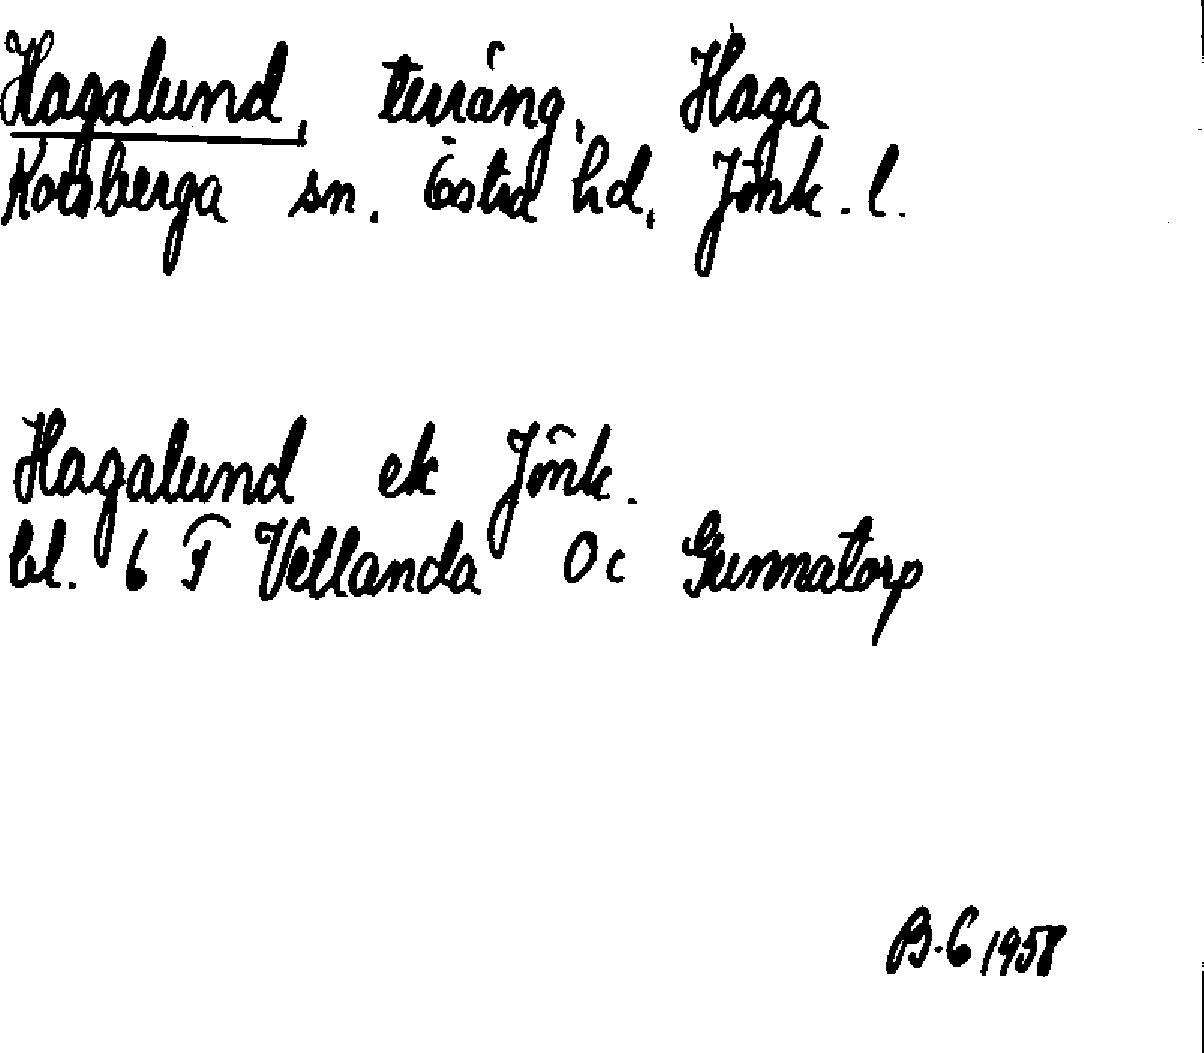 Hagalund, terräng, Haga
Korsberga sn. Östra hd, Jönk. l.
Hagalund ek Jönk.
bl. 6 F Vetlanda 0c Gunnatorp
B-G 1958